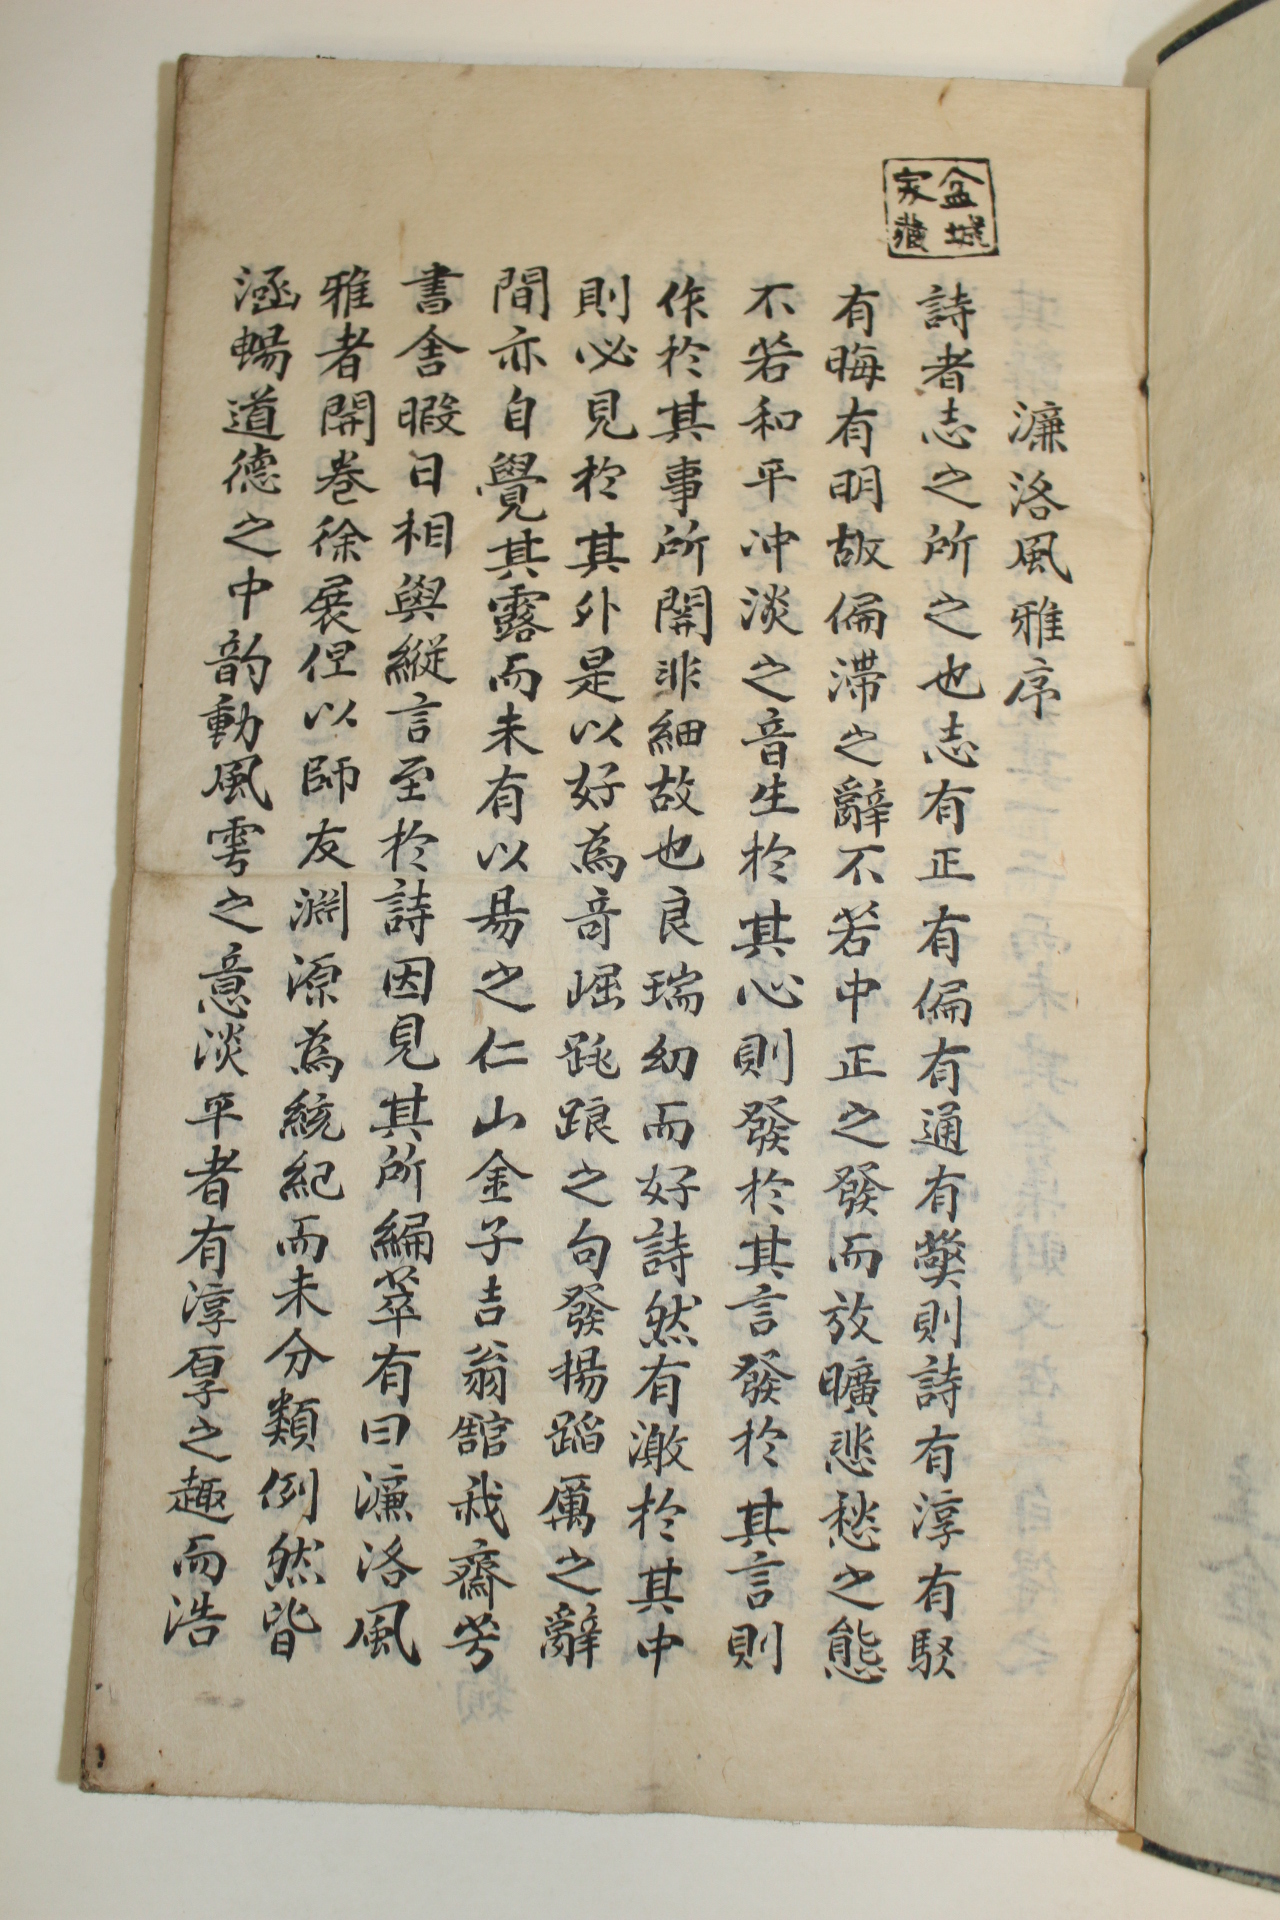 盆城
家藏
濂洛風雅序
詩者志之所之也志有正有偏有通有獘則詩有淳有駁
有晦有明故偏滯之辭不若中正之發而放曠悲愁之態
不若和平冲淡之音生於其心則發於其言發於其言則
作於其事所関非細故也良瑞幼而好詩然有激於其中
則必見於其外是以好為竒崛跳踉之句發揚蹈厲之辭
間亦自覺其露而未有以易之仁山金子吉翁舘我齋芳
書舎暇日相與縱言至於詩因見其所編萃有曰濂洛風
雅者開巻徐展但以師友淵源為統紀而未分類例然皆
涵暢道德之中韵動風雩之意淡平者有淳厚之趣而浩